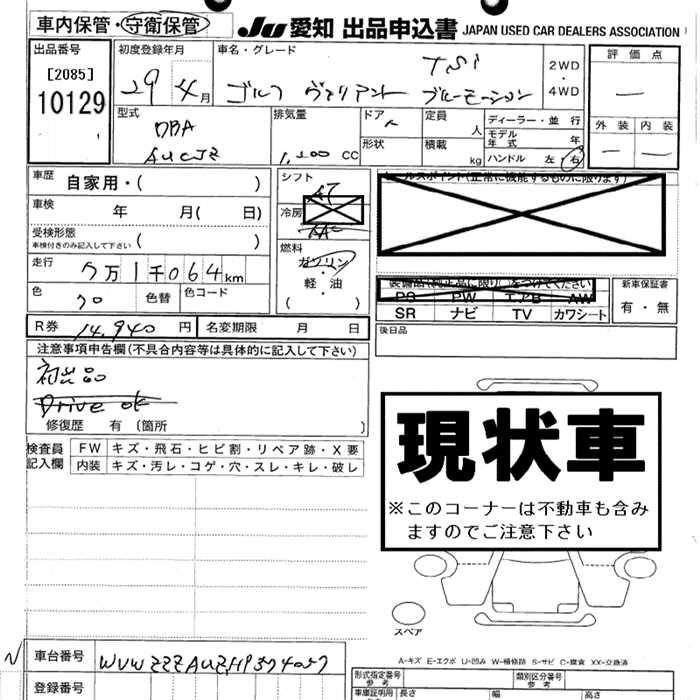 車内保管・守衛保管
JU 愛知 出品申込書 JAPAN USED CAR DEALERS ASSOCIATION
出品番号
[2085]
10129
初度登録年月
29 4月
車名・グレード
TSI
ゴルフ ヴァリアント ブルーモーション
2WD
・
4WD
評価点
―
外装 内装
― ―
型式
DBA
AUCJZ
排気量
1,200 CC
ドア
形状
定員 人
積載 kg
ディーラー・並行
モデル年式 年
ハンドル 左 右
車歴 自家用・( )
車検 年 月( 日)
受検形態
車検付きのみ記入して下さい ( )
走行 5万1千064km
色 クロ 色替 色コード
R券 14,940円 名変期限 月 日
シフト
AT
冷房
AAC
燃料
ガソリン
・軽・油
( )
セールスポイント(正常に機能するものに限ります)
装備品(純正品に限り)○をつけてください
PS PW エアB AW
SR ナビ TV カワシート
新車保証書
有・無
後日品
注意事項申告欄(不具合内容等は具体的に記入して下さい)
初出品
Drive ok
修復歴 有 〔箇所 〕
検査員記入欄
FW キズ・飛石・ヒビ割・リペア跡・X要
内装 キズ・汚レ・コゲ・穴・スレ・キレ・破レ
現状車
※このコーナーは不動車も含みますのでご注意下さい
スペア
A-キズ E-エクボ U-凹み W-補修跡 S-サビ C-腐食 XX-交換済
N 車台番号 WVWZZZAUZHP574057
登録番号
形式指定番号 参考
類別区分番号 参考
車庫証明用 長さ 幅 高さ